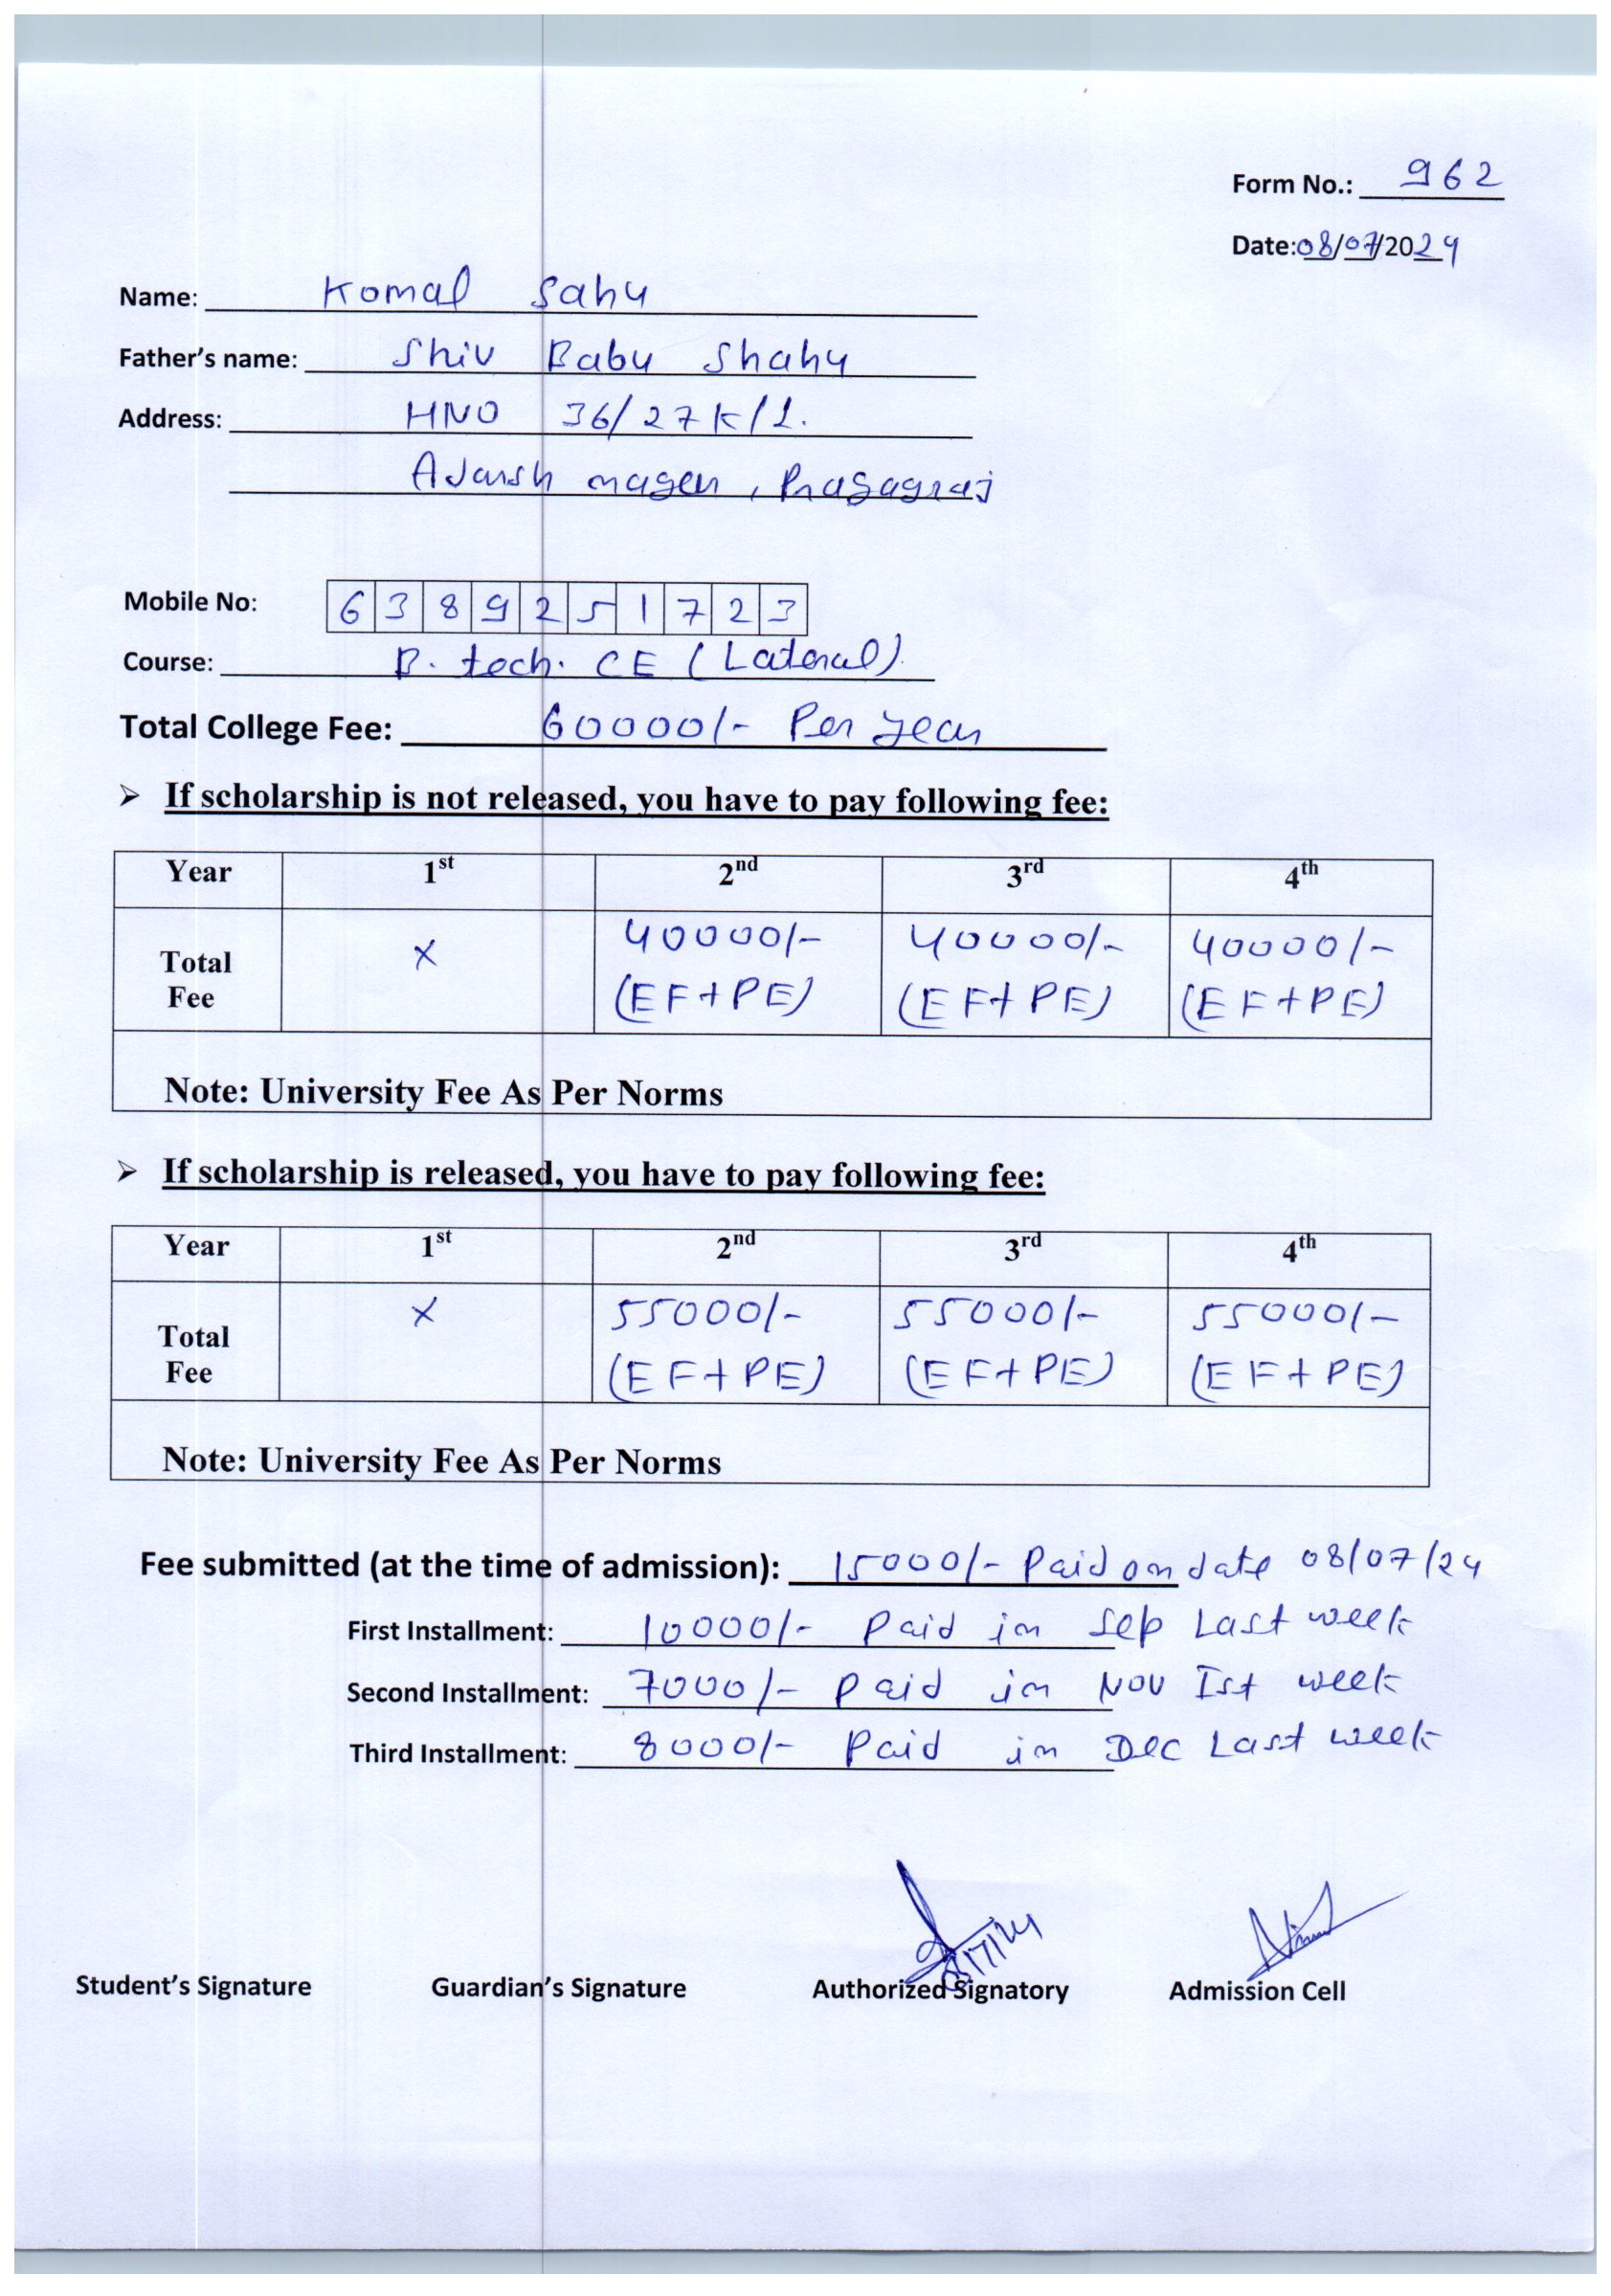 Form No.: 962
Date:08/07/2024
Name: Komal Sahu
Father's name: Shiv Babu Shahu
Address: HNO 36/27K/1.
Adarsh nagar, Prayagraj
Mobile No: 6 3 8 9 2 5 1 7 2 3
Course: B.tech. CE (Lateral)
Total College Fee: 60000/- Per year
➢ If scholarship is not released, you have to pay following fee:
Year 1st 2nd 3rd 4th
Total Fee X 40000/- 40000/- 40000/-
(EF+PE) (EF+PE) (EF+PE)
Note: University Fee As Per Norms
➢ If scholarship is released, you have to pay following fee:
Year 1st 2nd 3rd 4th
Total Fee X 55000/- 55000/- 55000/-
(EF+PE) (EF+PE) (EF+PE)
Note: University Fee As Per Norms
Fee submitted (at the time of admission): 15000/- Paid on date 08/07/24
First Installment: 10000/- Paid in Sep Last week
Second Installment: 7000/- Paid in Nov Ist week
Third Installment: 8000/- Paid in Dec Last week
Student's Signature Guardian's Signature Authorized Signatory Admission Cell